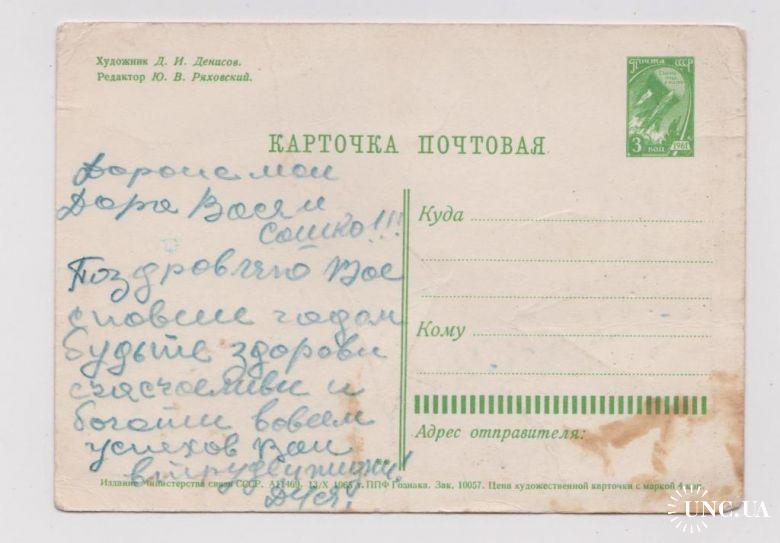 Художник Д. И. Денисов.
Редактор Ю. В. Ряховский.
ПОЧТА СССР
3 КОП
1961
КАРТОЧКА ПОЧТОВАЯ
Дорогие мои
Дора Вася и
Сашко!!!
Поздровляю Вас
с новым годом
будьте здорови
счасчливи и
богати вовсем
успехов Вам
в труде и жизни!
Дуся.
Куда
Кому
Адрес отправителя:
Издание Министерства связи СССР. А11469. 13/X 1965 г. ППФ Гознака. Зак. 10057. Цена художественной карточки с маркой 4 коп.
UNC.UA